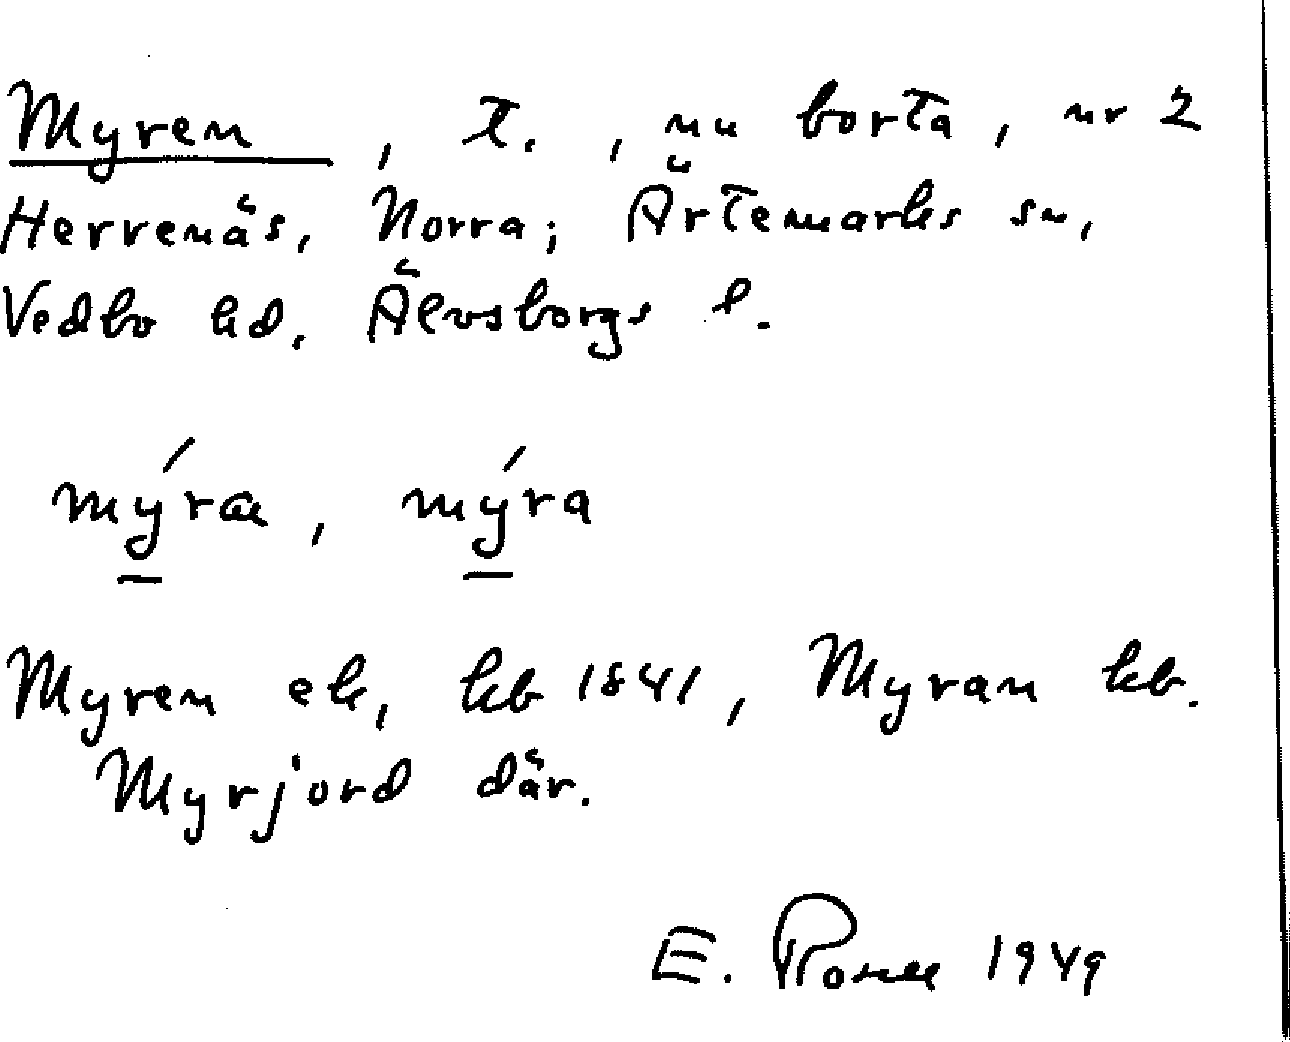 Myren, t., nu borta, nr 2
Herrenäs, Norra; Ärtemarks sn,
Vedbo hd. Älvsborgs l.
mýræ, mýra
Myren ek, kb 1841, Myran kb.
Myrjord där.
E. 1949